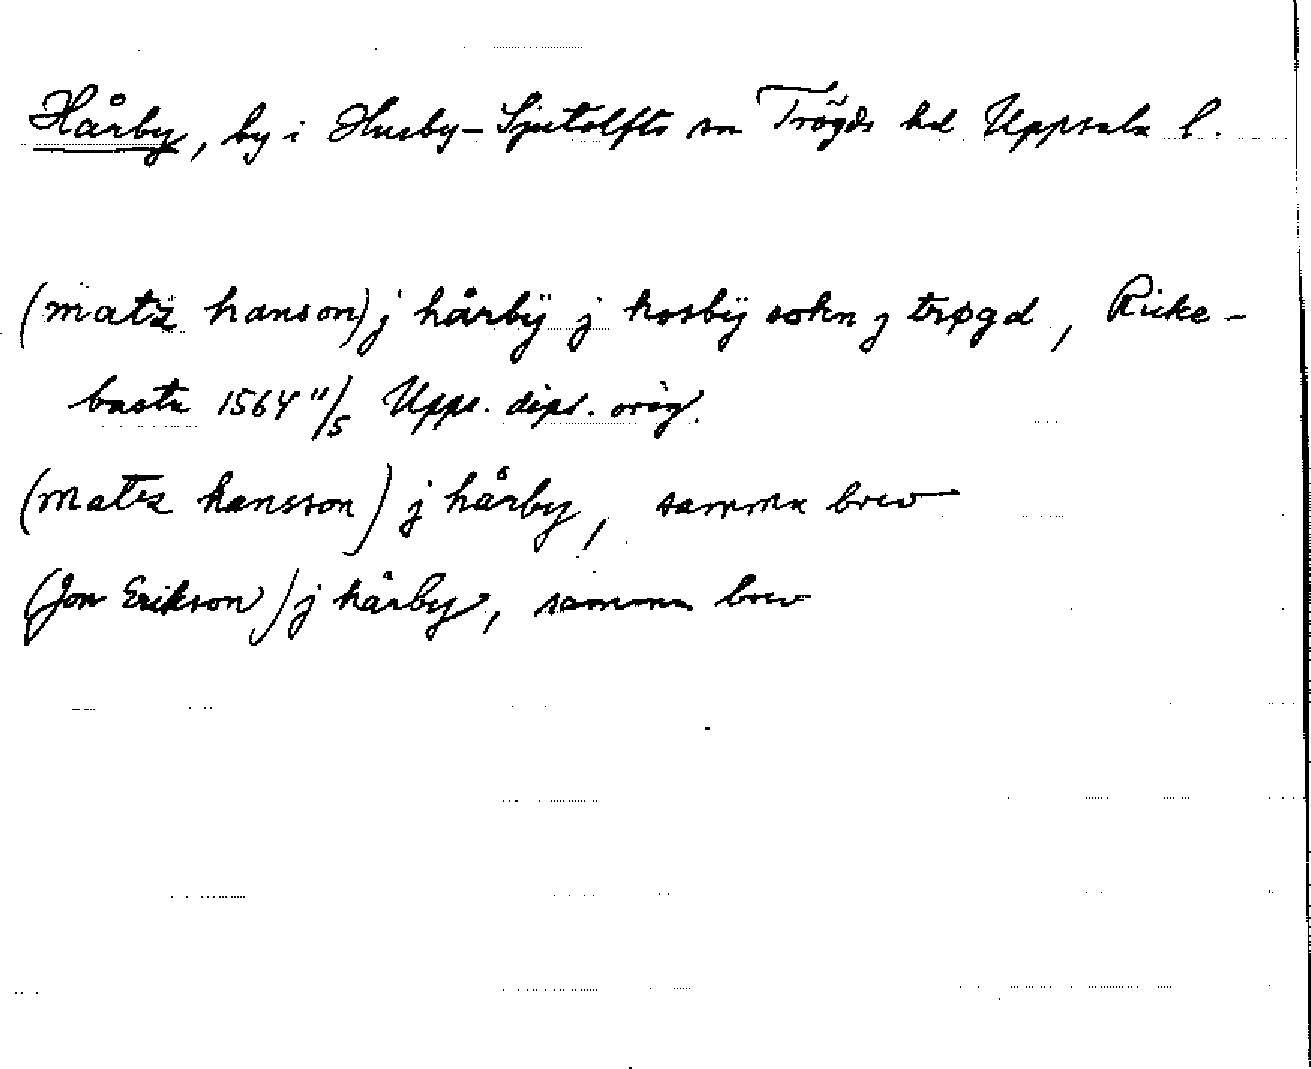 Hårby, by i Husby-Sjutolfts sn Trögds hd Uppsala l.
(matz hanson) j hårbÿ j hosbÿ sokn j trøgd, Ricke-
basta 1564 11/5 Upps. dipl. orig.
(matz hansson) j hårby, samma brev
(Jon Erikson) j hårby, samma brev